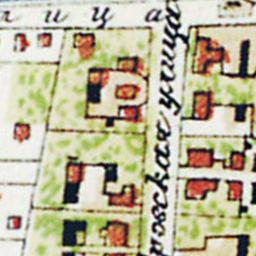 ица
ровская улица